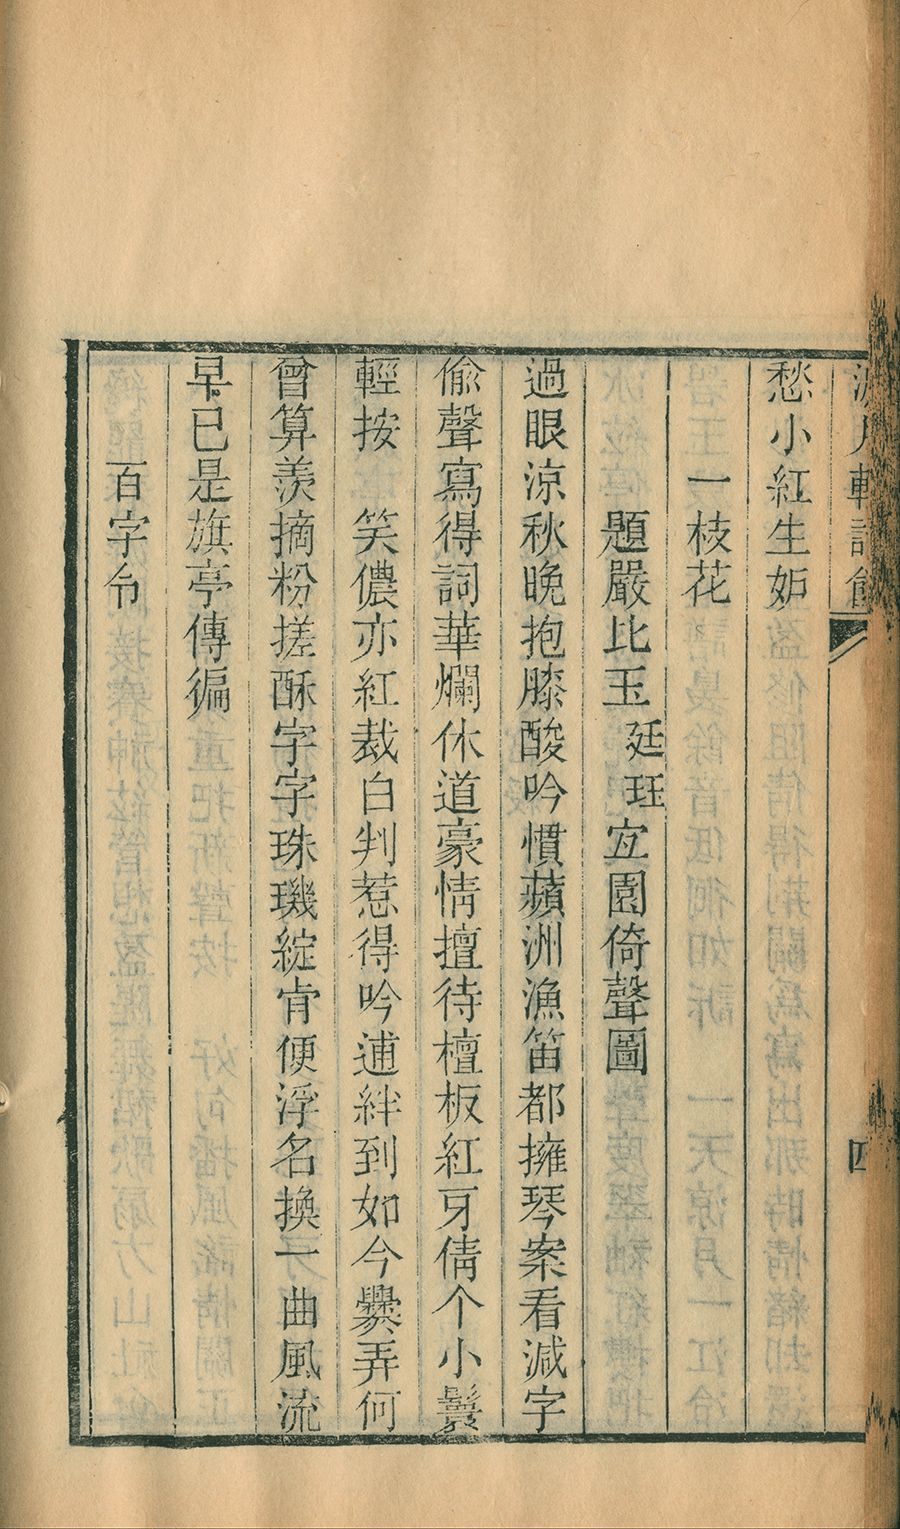 月軒詞 四
愁小紅生妒
一枝花
題嚴比玉廷珏宜園倚聲圖
過眼涼秋晚抱膝酸吟慣蘋洲漁笛都擁琴案看減字
偸聲寫得詞華爛休道豪情擅待檀板紅牙倩个小鬟
輕按 笑儂亦紅裁白判惹得吟逋絆到如今爨弄何
曾算羨摘粉搓酥字字珠璣綻肯便浮名換一曲風流
早已是旗亭傳徧
百字令